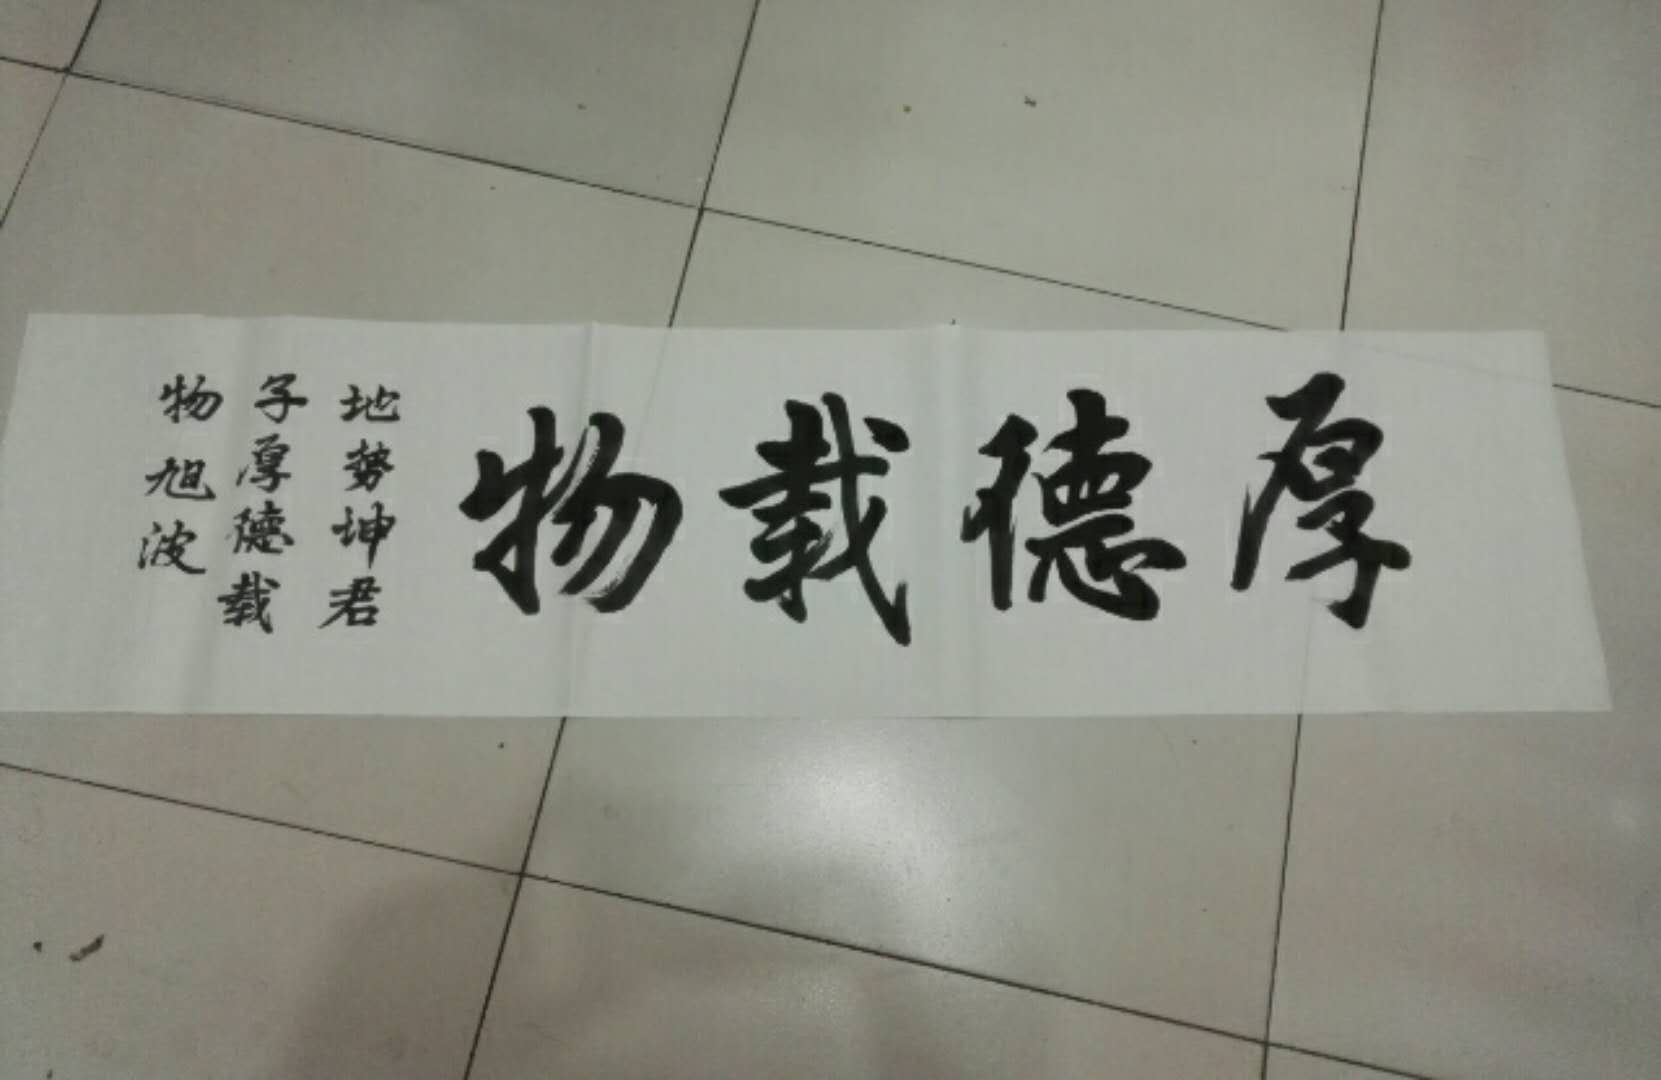 厚德载物
地势坤君
子厚德载
物旭波